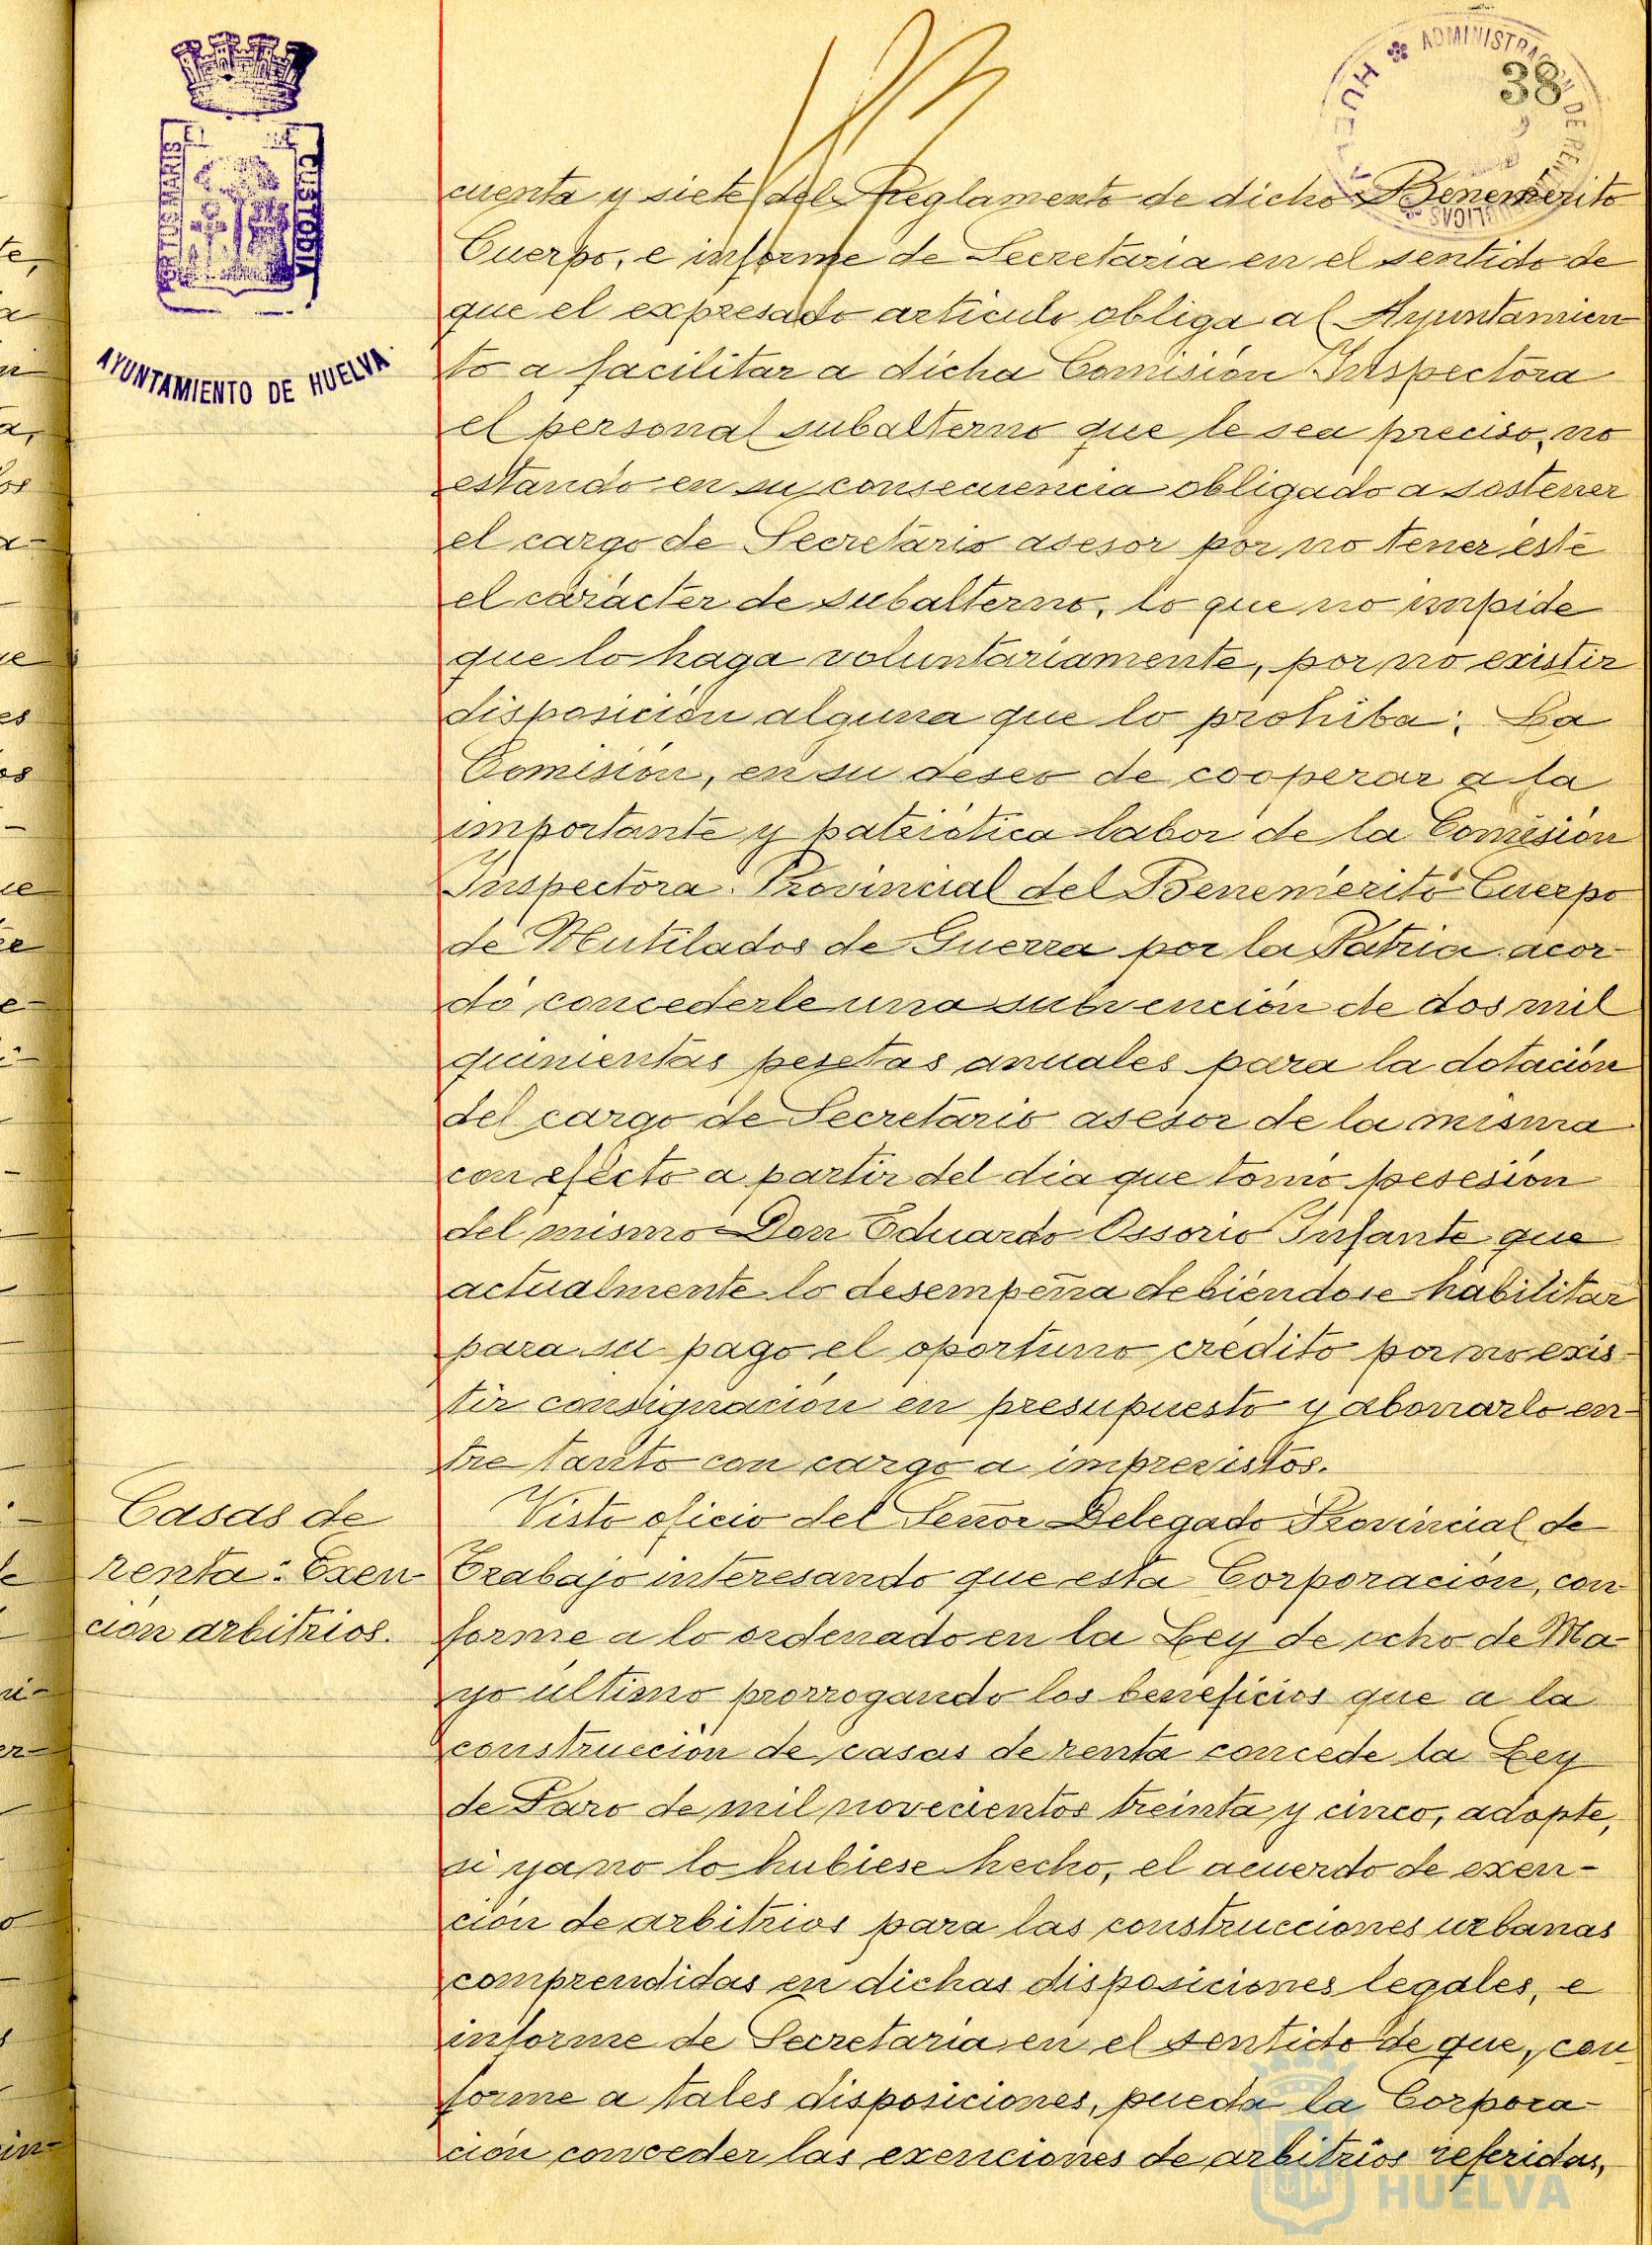 38
ADMINISTRACIÓN DE RENTAS PUBLICAS
HUELVA
PORTUS MARIS ET TERRE CUSTODIA
AYUNTAMIENTO DE HUELVA
cuenta y siete del Reglamento de dicho Benemerito
Cuerpo, e informe de Secretaria en el sentido de
que el expresado articulo obliga al Ayuntamien
to a facilitar a dicha Comisión Inspectora
el personal subalterno que le sea preciso, no
estando en su consecuencia obligado a sostener
el cargo de Secretario asesor por no tener éste
el carácter de subalterno, lo que no impide
que lo haga voluntariamente, por no existir
disposición alguna que lo prohiba; La
Comisión, en su deseo de cooperar a la
importante y patriótica labor de la Comisión
Inspectora Provincial del Benemérito Cuerpo
de Mutilados de Guerra por la Patria acor-
dó concederle una subvención de dos mil
quinientas pesetas anuales para la dotación
del cargo de Secretario asesor de la misma
con efecto a partir del dia que tomó posesión
del mismo Don Eduardo Ossorio Infante que
actualmente lo desempeña debiéndose habilitar
para su pago el oportuno crédito por no exis-
tir consignación en presupuesto y abonarlo en-
tre tanto con cargo a imprevistos.
Casas de
renta: Exen-
ción arbitrios.
Visto oficio del Señor Delegado Provincial de
Trabajo interesando que esta Corporación, con-
forme a lo ordenado en la Ley de ocho de Ma-
yo último prorrogando los beneficios que a la
construcción de casas de renta concede la Ley
de Paro de mil novecientos treinta y cinco, adopte,
si ya no lo hubiese hecho, el acuerdo de exen-
ción de arbitrios para las construcciones urbanas
comprendidas en dichas disposiciones legales, e
informe de Secretaria en el sentido de que, con-
forme a tales disposiciones, pueda la Corpora-
ción conceder las exenciones de arbitrios referidas,
HUELVA